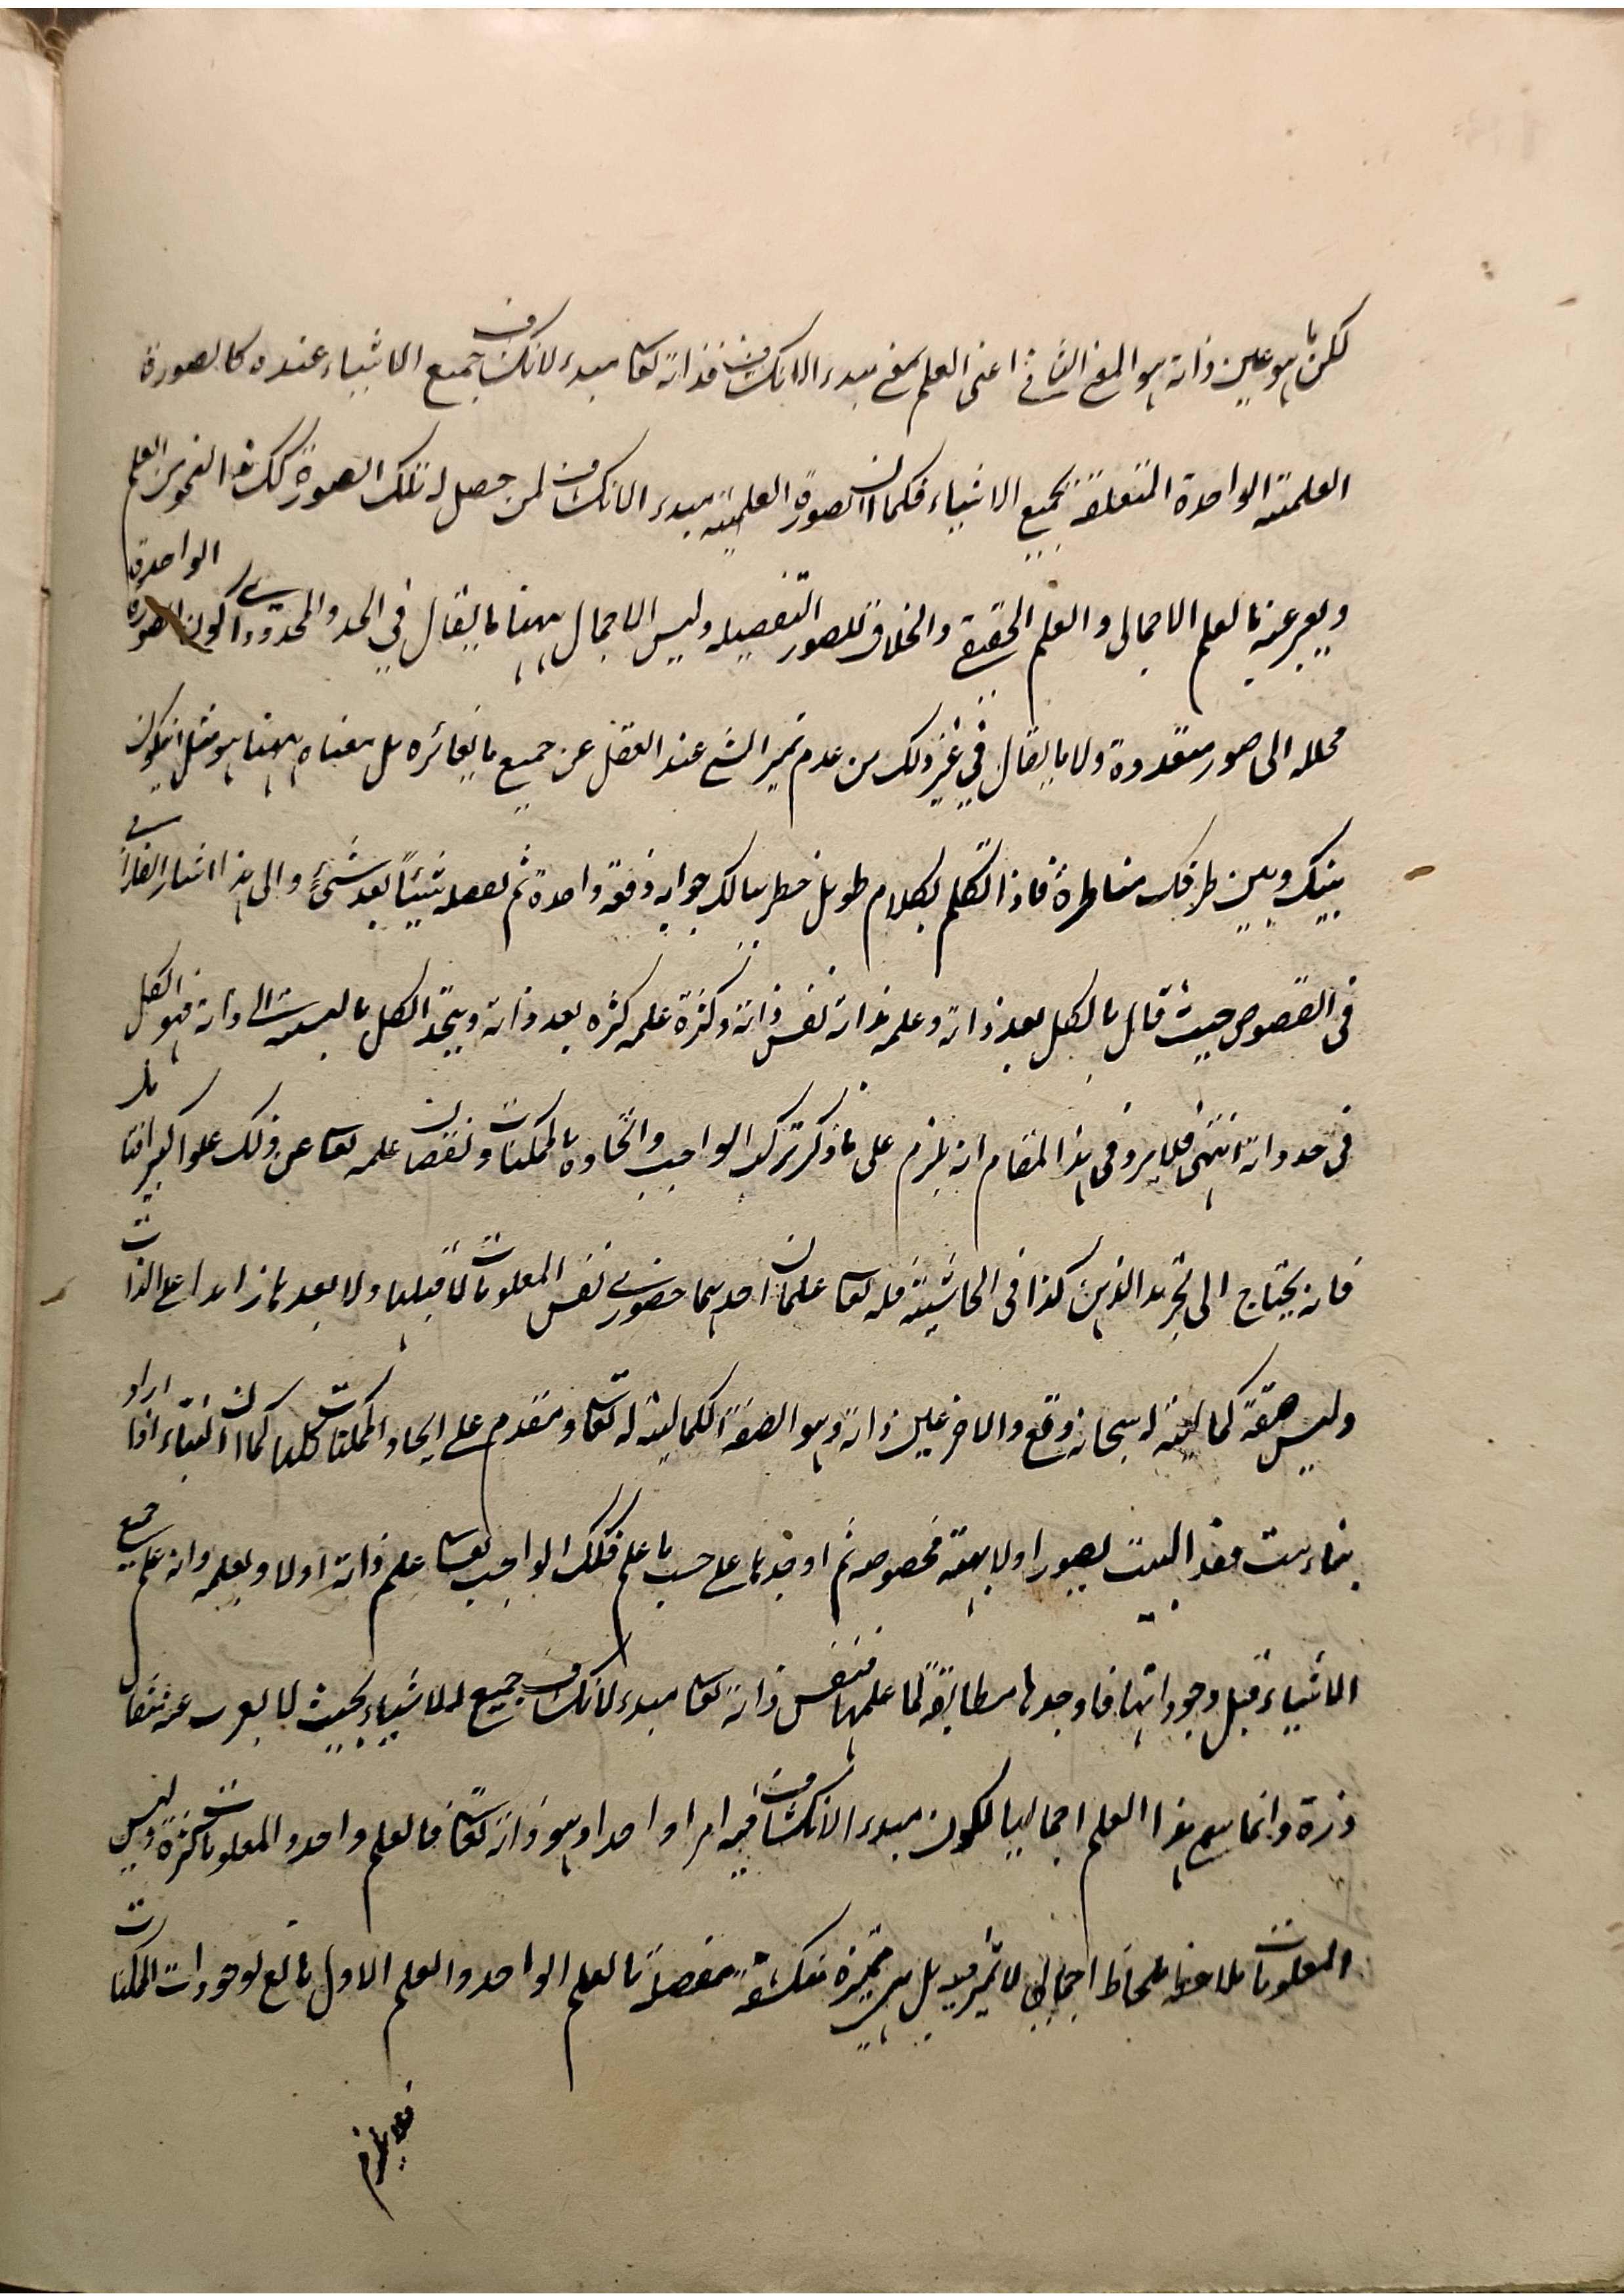 لكن ما هو عين ذاته هو المعنى الثاني اعنى العلم بمعنى مبدء الانكشاف فذاته تعا مبدء لانكشاف جميع الاشياء عنده كالصورة
العلمية الواحدة المتعلقة بجميع الاشياء فكما ان الصورة العلمية مبدء الانكشاف لمن حصل له تلك الصورة كك هذا النحو من العلم
ويعبر عنه بالعلم الاجمالى والعلم الحقيقي والخلاق للصور التفصيلية وليس الاجمال ههنا ما يقال في الحد والمحدود اى كون الصورة الواحدة
محللة الى صور متعددة ولا ما يقال في غير ذلك من عدم تميز الشئ عند العقل عن جميع ما يغائره بل معناه ههنا هو مثل ان يكون
بينك وبين طرفك مناظرة فاذا تكلم بكلام طويل خطر ببالك جوابه دفعة واحدة ثم تفصله شيئاً بعد شئ والى هذا اشار الفارابى
فى الفصوص حيث قال بالكل بعد ذاته وعلمه بذاته نفس ذاته وكثرة علمه كثرة بعد ذاته ويتحد الكل بالنسبة الى ذاته فهو الكل
فى حد ذاته انتهى فلا يرد فى هذا المقام انه يلزم على ما ذكر تركب الواجب واتحاده بالممكنات ونقصان علمه تعا عن ذلك علوا كبيرا فتامل
فانه يحتاج الى تجريد الذهن كذا فى الحاشية فله تعا علمان احدهما حضورى نفس المعلومات لا قبلها ولا بعدها زائدا على الذات
وليس صفة كمالية له سبحانه وتع والاخر عين ذاته وهو الصفة الكمالية له تعا ومتقدم على ايجاد الممكنات كلها كما ان البناء اذا اراد
بناء بيت فقد البيت يصور اولا بهيئة مخصوصة ثم اوجدها على حسب ما علم فكذلك الواجب تعا علم ذاته اولا وبعلمه ذاته علم جميع
الاشياء قبل وجوداتها فاوجدها مطابقة لما علمها فنفس ذاته تعا مبدء لانكشاف جميع الاشياء بحيث لا يعزب عنه مثقال
ذرة وانما سمى هذا العلم اجماليا لكون مبدء الانكشاف فيه امرا واحدا وهو ذاته تعا فالعلم واحد والمعلومات كثرة وليس
المعلومات ملاحظة بلحاظ اجمالى لا تميز فيه بل هى متميزة منكشفة مفصلة بالعلم الواحد والعلم الاول تابع لوجودات الممكنات
فلا يلزم